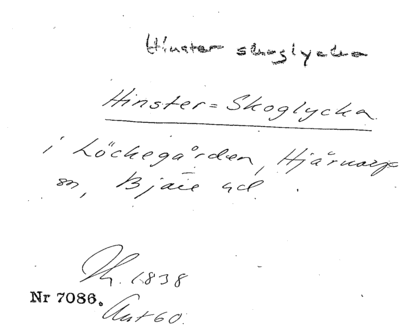 Hinster skoglycka
Hinster=Skoglycka
i Löckegården, Hjärnarp
sn, Bjäre hd.
1838
Nr 7086.
Akt 60.